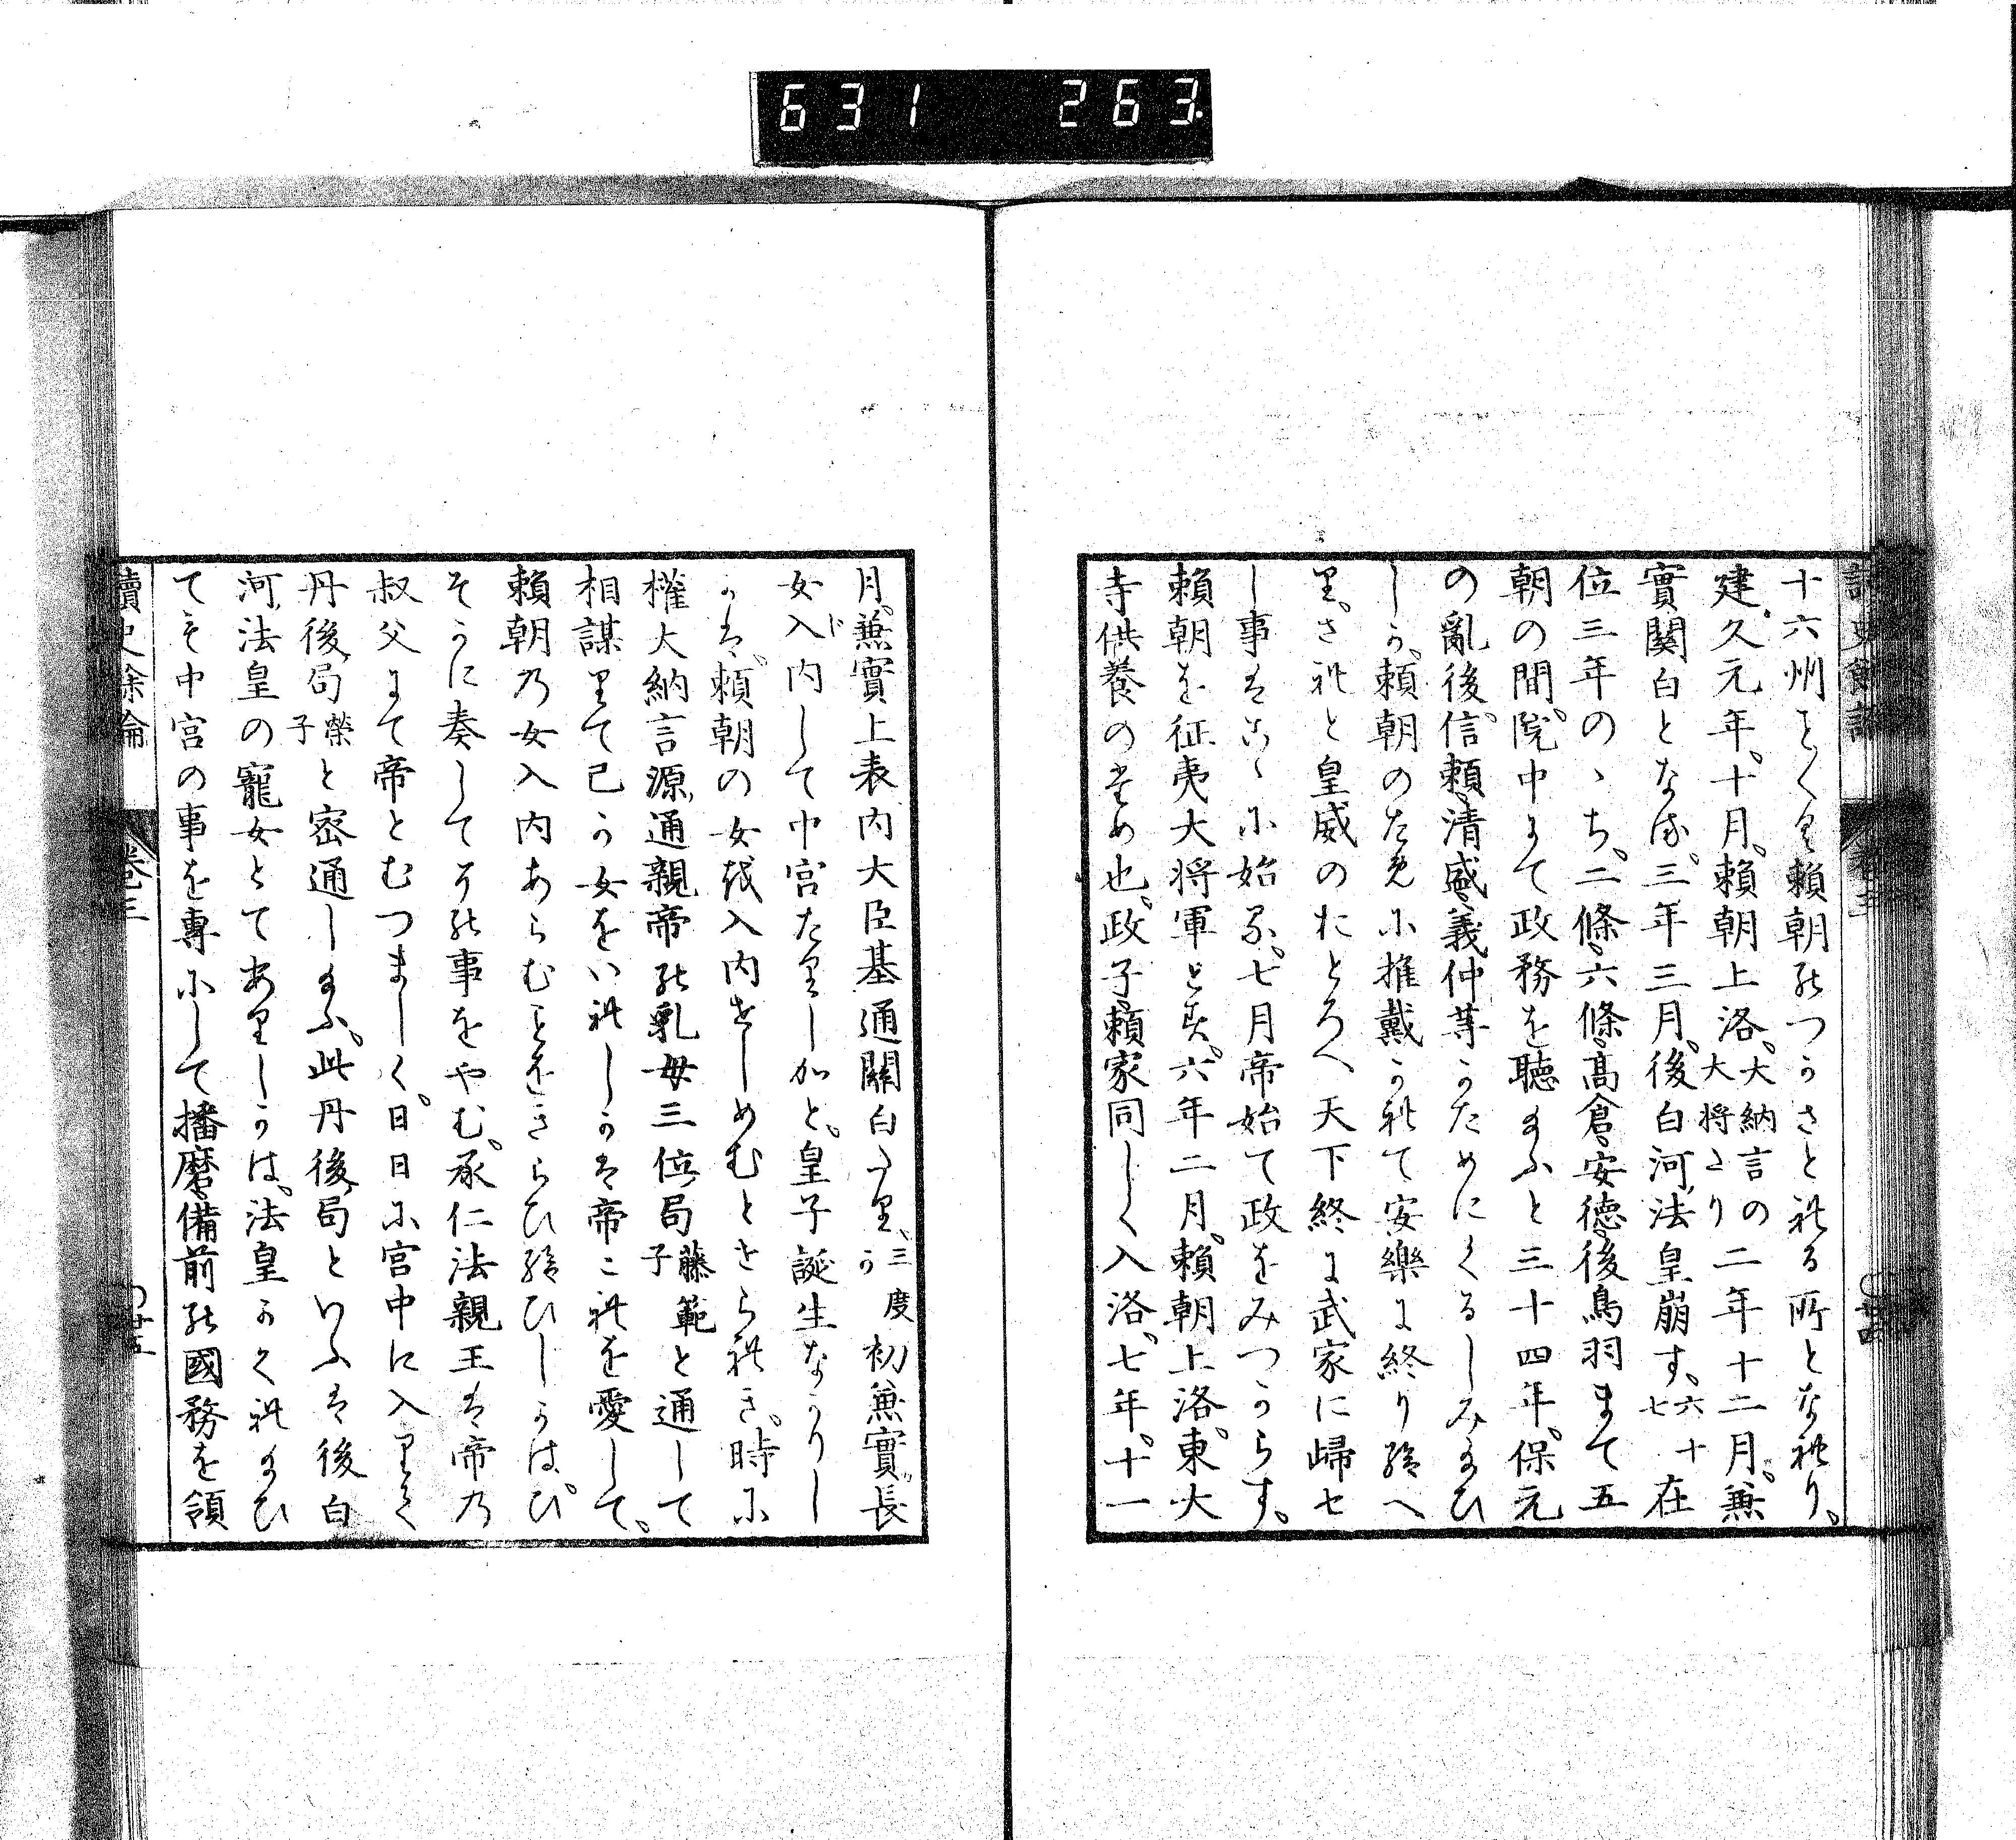 631 263
十六州ことく頼朝のつかさとれる所となれり。
建久元年。十月。頼朝上洛。大納言の大将より二年十二月。兼
實關白となる。三年三月。後白河法皇崩す。六十七在
位三年のゝち。二條。六條。高倉。安徳。後鳥羽まて五
朝の間。院中にて政務を聴給ふと三十四年。保元
の亂後。信頼。清盛。義仲等かためにくるしみ給ひ
しか。頼朝のために推戴かれて安樂に終り給へ
り。されと皇威のおとろへ天下終に武家に帰せ
し事はこゝに始る。七月帝始て政をみつからす。
頼朝を征夷大将軍とす。六年二月。頼朝上洛。東大
寺供養のため也。政子。頼家同しく入洛。七年。十一
讀史餘論 卷三 廿四
月。兼實上表内大臣基通關白たり。三度か初兼實か長
女入内して中宮たりしかと。皇子誕生なかりし
かは。頼朝の女を入内せしめむとせられき。時に
權大納言源通親帝の乳母三位局藤範子と通して
相謀りて己か女をいれしかは帝これを愛して。
頼朝の女入内あらむことをきらひ給ひしかは。ひ
そかに奏してその事をやむ。承仁法親王は帝の
叔父にて帝とむつましく。日日に宮中に入りて
丹後局榮子と密通し給ふ。此丹後局といふは後白
河法皇の寵女とてありしかは。法皇かくれ給ひ
ても中宮の事を專にして播磨。備前の國務を領
讀史餘論 卷三 廿五